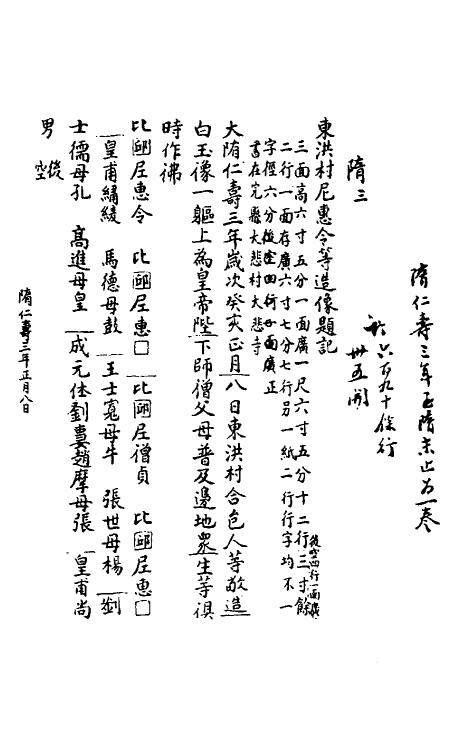 隋仁壽三年至隋末止為一卷
計六百九十餘行
卅五開
隋三
東洪村尼惠令等造像題記
三面高六寸五分一面廣一尺六寸五分十二行三寸餘後空四行一面廣
二行一面存廣六寸七分七行另一紙二行行字均不一
字徑六分後空四行一面廣正
書在完縣大悲村大悲寺
大隋仁壽三年歲次癸亥正月八日東洪村合邑人等敬造
白玉像一軀上為皇帝陛下師僧父母普及邊地眾生等俱
時作佛
比𨛦尼惠令 比𨛦尼惠□ 比𨛦尼僧貞 比𨛦尼惠□
皇甫繡綾 馬德母鼓 王士寬母牛 張世母楊 劉
士儒母孔 高進母皇 成元伾劉婁趙摩母張 皇甫尚
男 後空
隋仁壽三年正月八日